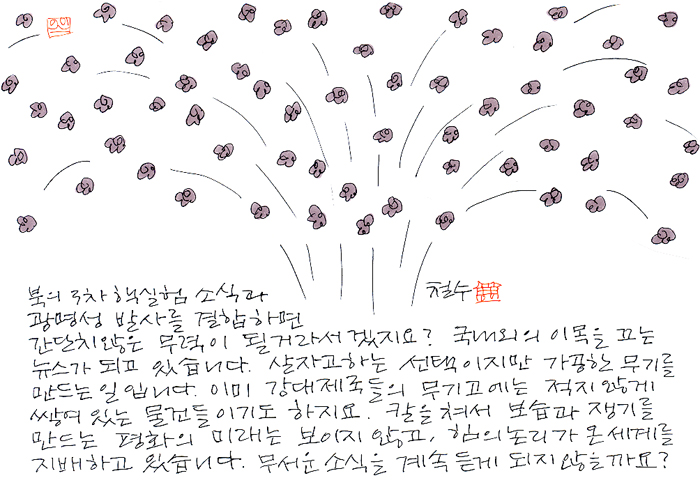 북의 3차 핵실험 소식과
철수
광명성 발사를 결합하면
간단치않은 무력이 될거라서겠지요? 국내외의 이목을 끄는
뉴스가 되고 있습니다. 살자고하는 선택이지만 가공할 무기를
만드는 일입니다. 이미 강대제국들의 무기고에는 적지않게
쌓여있는 물건들이기도 하지요. 칼을 쳐서 보습과 쟁기를
만드는 평화의 미래는 보이지않고, 힘의 논리가 온세계를
지배하고 있습니다. 무서운 소식을 계속 듣게 되지않을까요?